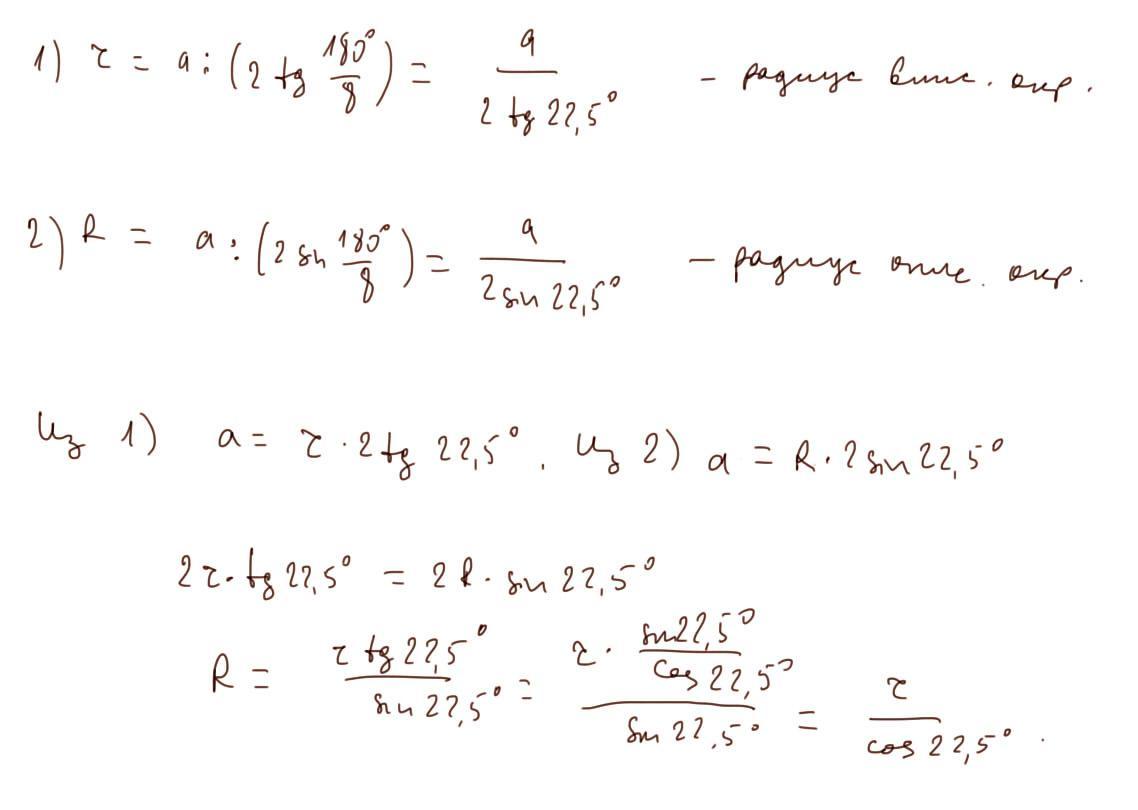 1) r = a : (2 tg 180°/8) = a / (2 tg 22,5°) – радиус впис. окр.
2) R = a : (2 sin 180°/8) = a / (2 sin 22,5°) – радиус опис. окр.
Из 1) a = r · 2 tg 22,5°. Из 2) a = R · 2 sin 22,5°
2r · tg 22,5° = 2R · sin 22,5°
R = (r tg 22,5°) / (sin 22,5°) = (r · sin 22,5° / cos 22,5°) / (sin 22,5°) = r / (cos 22,5°).